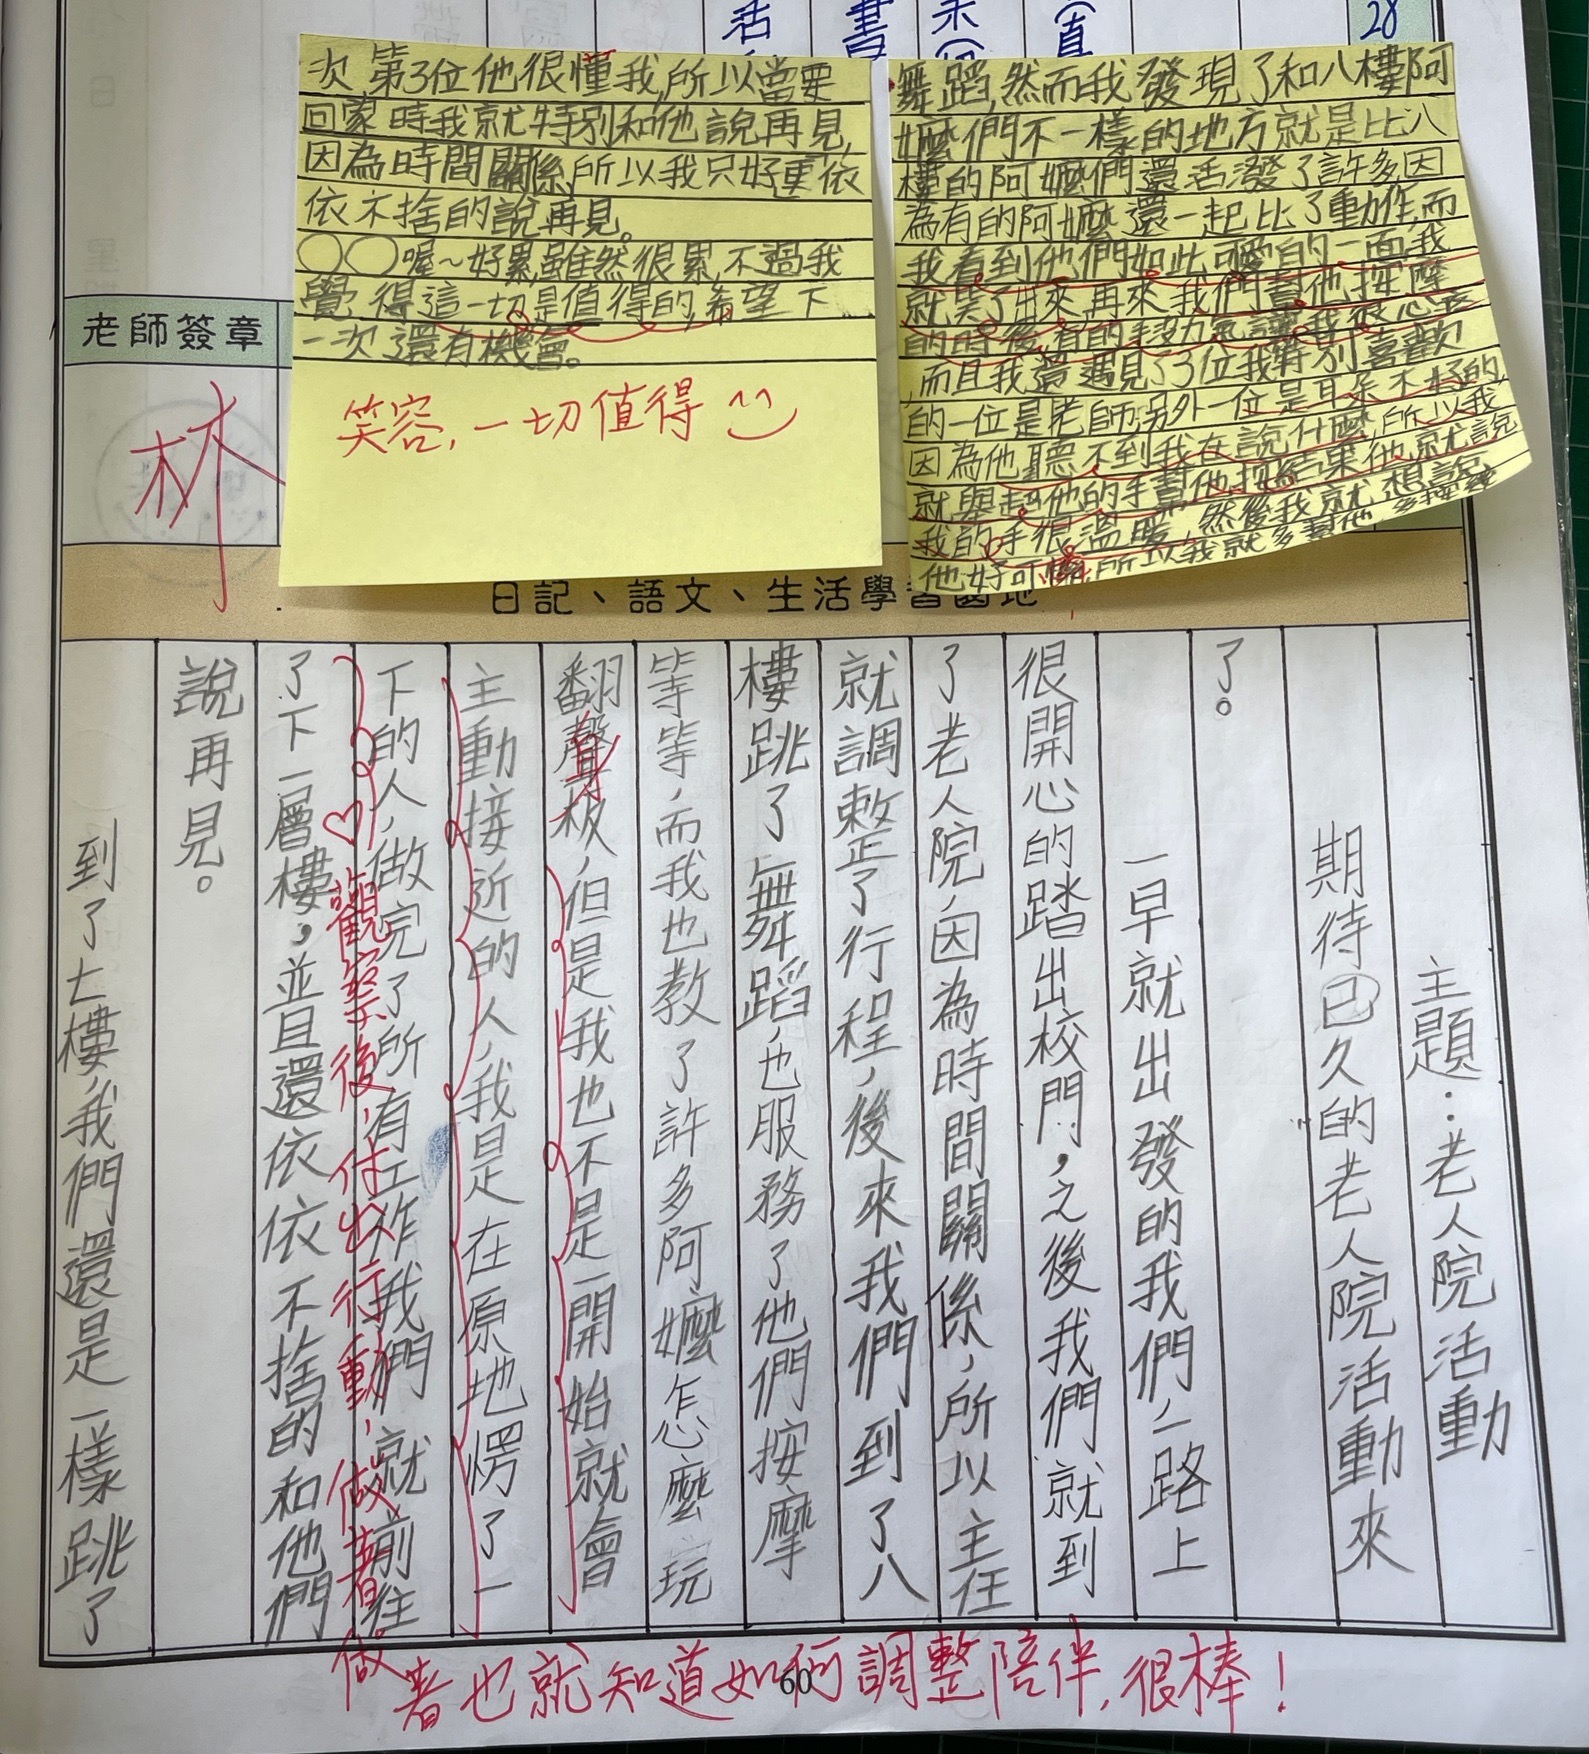 28
活
書
未(
(直
老師簽章
林
日記、語文、生活學習園地
主題：老人院活動
期待已久的老人院活動來
了。
一早就出發的我們，一路上
很開心的踏出校門，之後我們就到
了老人院，因為時間關係，所以主任
就調整了行程，後來我們到了八
樓跳了舞蹈，也服務了他們按摩
等等，而我也教了許多阿嬤怎麼玩
翻聲板，但是我也不是一開始就會
主動接近的人，我是在原地愣了一
下的人，做完了所有工作我們就前往
了下一層樓，並且還依依不捨的和他們
說再見。
到了七樓，我們還是一樣跳了
舞蹈，然而我發現了和八樓阿
嬤們不一樣的地方就是比八
樓的阿嬤們還活潑了許多因
為有的阿嬤還一起比了動作，而
我看到他們如此可愛的一面，我
就笑了出來再來我們幫他按摩
的時後，有的手沒力氣讓我很心疼
,而且我還遇見了3位我特別喜歡
的一位是老師，另外一位是耳朵不好的,
因為他聽不到我在說什麼，所以我
就舉起他的手幫他按結果他就說
我的手很溫暖，然後我就想說
他好可憐所以我就多幫他多按幾
次，第3位他很懂我，所以當要
回家時我就特別和他說再見,
因為時間關係，所以我只好重依
依不捨的說再見。
○○喔~好累，雖然很累，不過我
覺得這一切是值得的，希望下
一次還有機會。
笑容，一切值得
觀察後，付出行動，做著做
著也就知道如何調整陪伴，很棒！
60